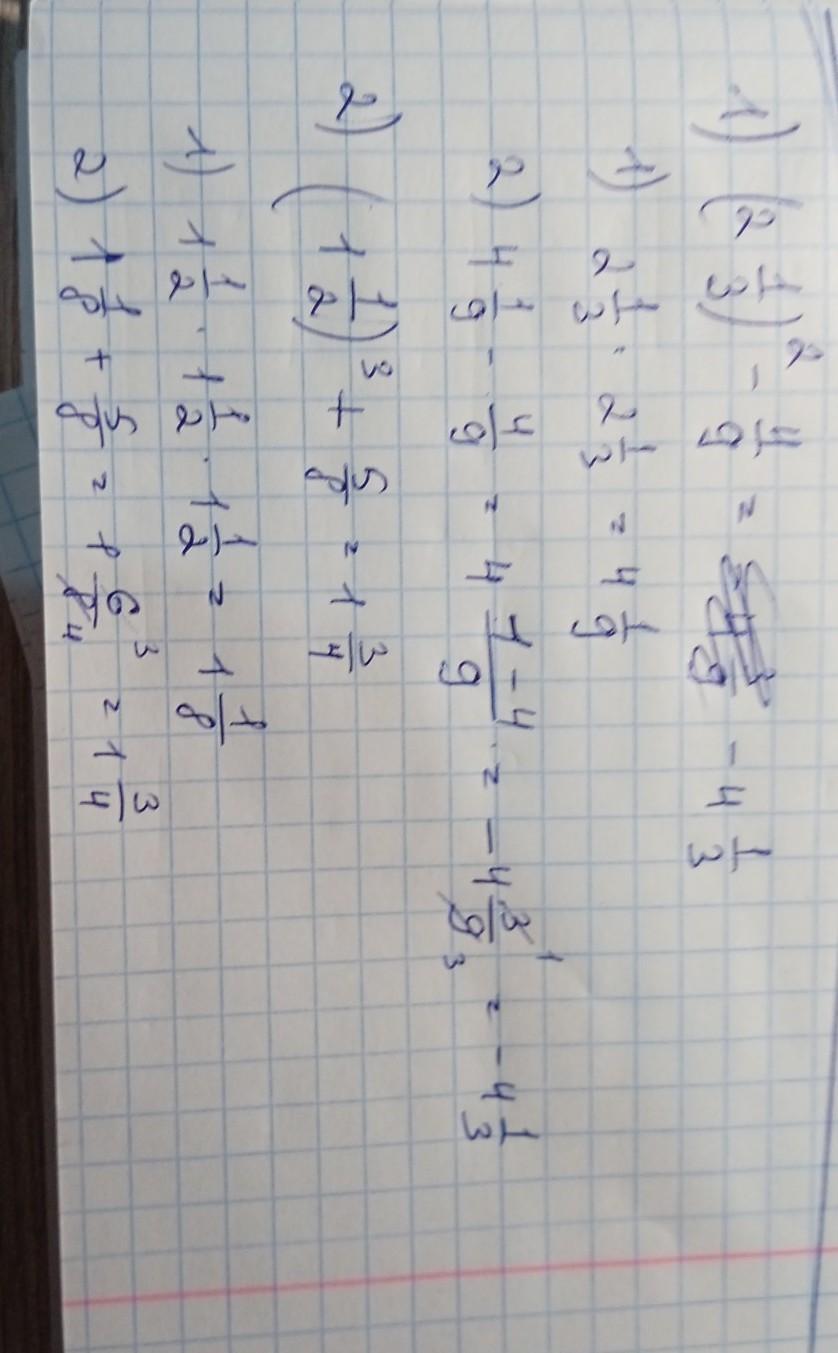 1) (2 1/3)² - 4/9 = - 4 1/3
1) 2 1/3 · 2 1/3 = 4 1/9
2) 4 1/9 - 4/9 = 4 (1-4)/9 = -4 3/9 1 3 = -4 1/3
2) (1 1/2)³ + 5/8 = 1 3/4
1) 1 1/2 · 1 1/2 · 1 1/2 = 1 1/8
2) 1 1/8 + 5/8 = 1 6/8 3 4 = 1 3/4